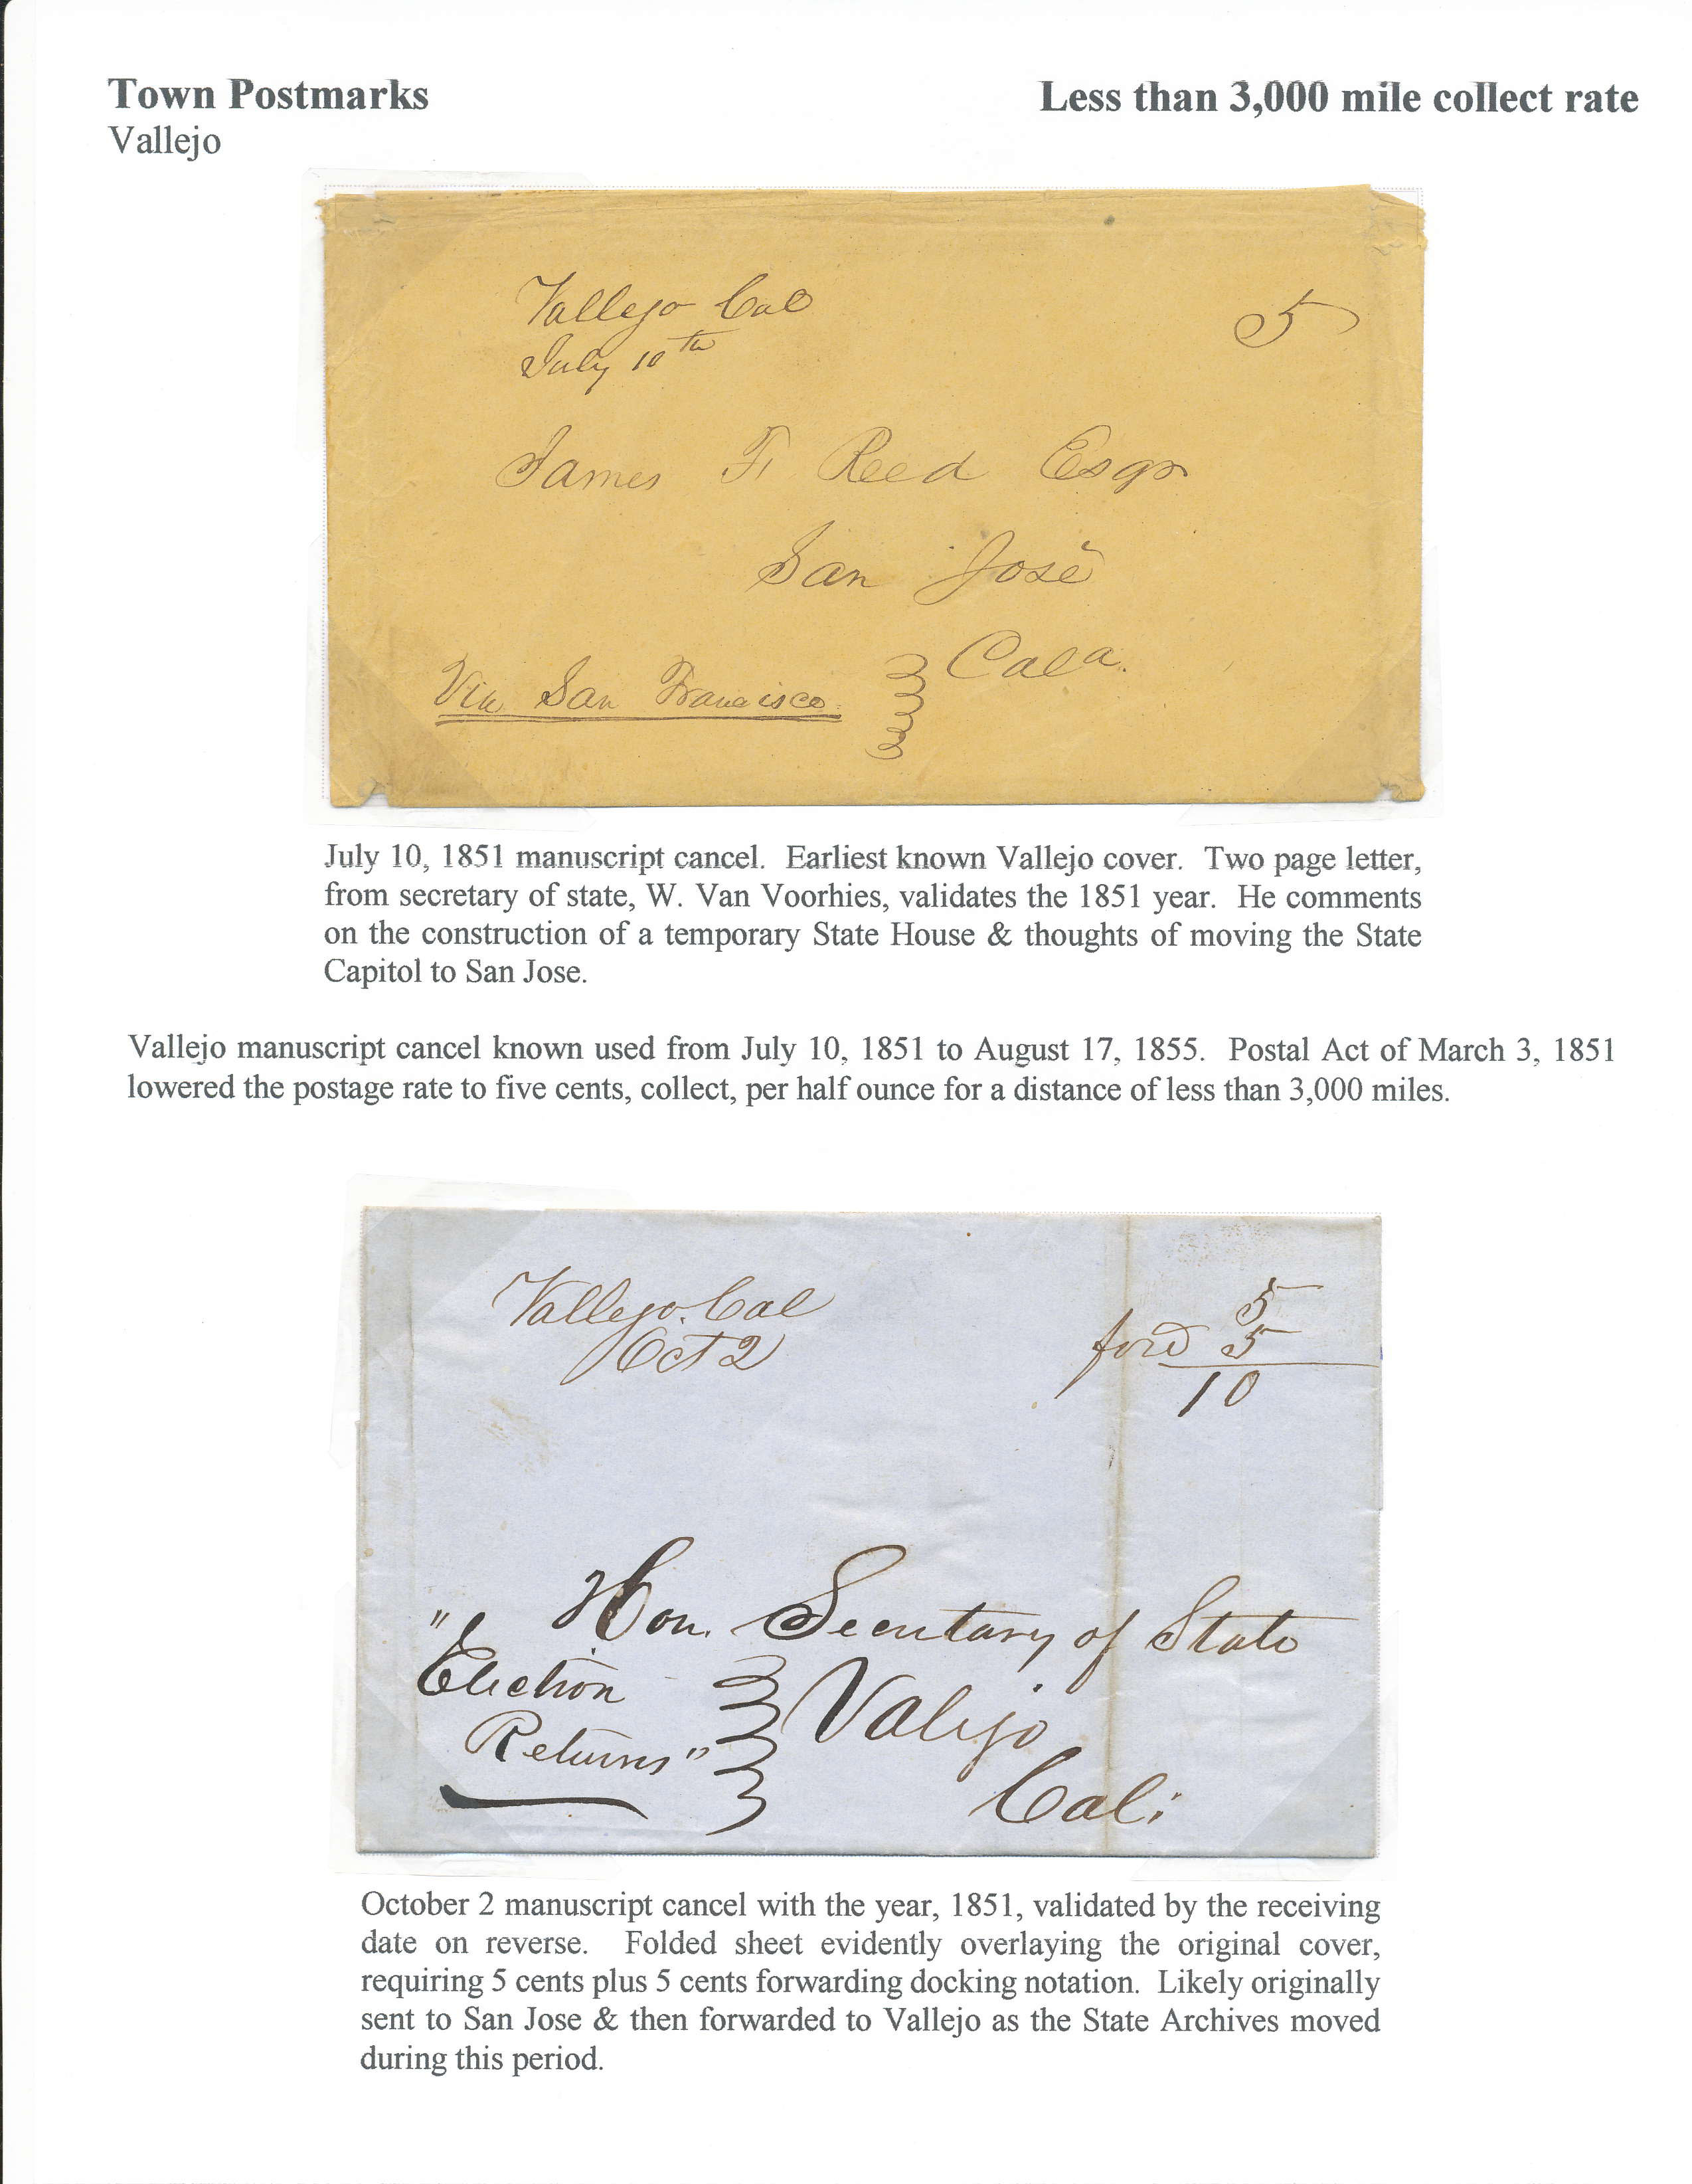 Town Postmarks
Less than 3,000 mile collect rate
Vallejo
Vallejo Cal
5
July 10th
James F. Reed Esqr
San José
Cala.
Via San Francisco
July 10, 1851 manuscript cancel. Earliest known Vallejo cover. Two page letter,
from secretary of state, W. Van Voorhies, validates the 1851 year. He comments
on the construction of a temporary State House & thoughts of moving the State
Capitol to San Jose.
Vallejo manuscript cancel known used from July 10, 1851 to August 17, 1855. Postal Act of March 3, 1851
lowered the postage rate to five cents, collect, per half ounce for a distance of less than 3,000 miles.
Vallejo. Cal
Oct 2
5
ford 5
10
Hon. Secretary of State
"Election
Returns"
Valejo
Cal:
October 2 manuscript cancel with the year, 1851, validated by the receiving
date on reverse. Folded sheet evidently overlaying the original cover,
requiring 5 cents plus 5 cents forwarding docking notation. Likely originally
sent to San Jose & then forwarded to Vallejo as the State Archives moved
during this period.